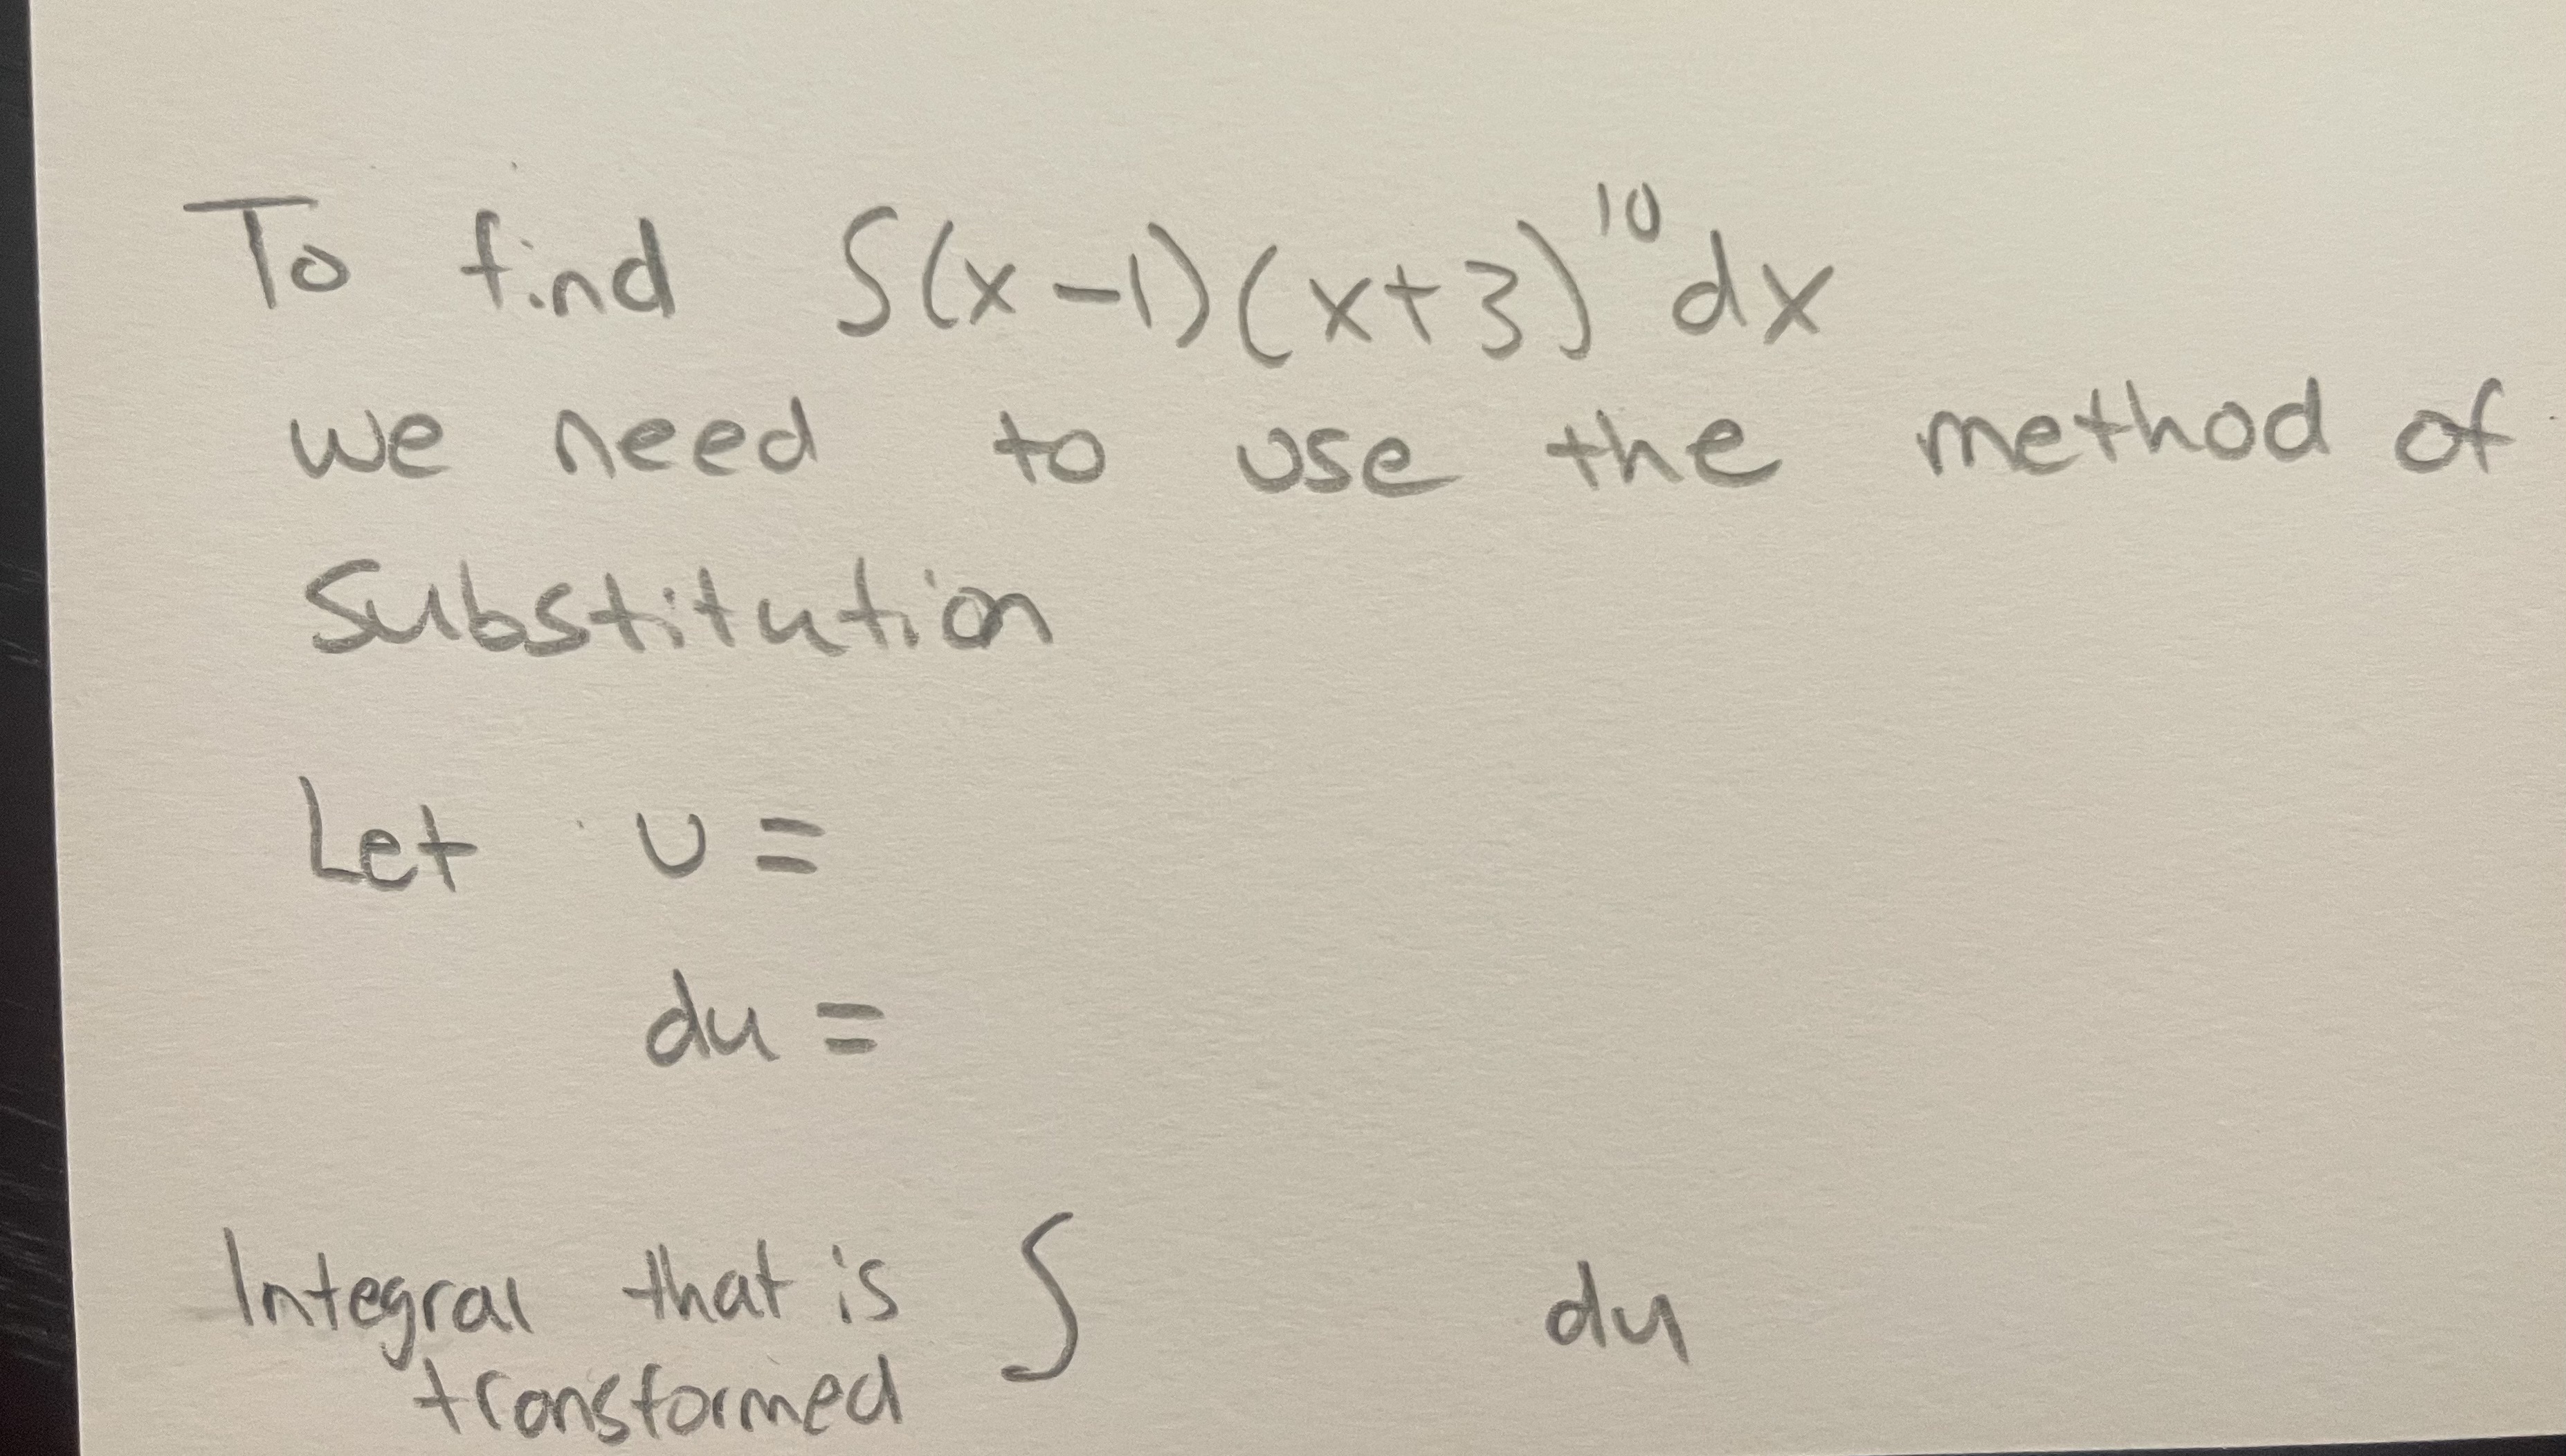 To find ∫(x-1)(x+3)^10 dx
we need to use the method of
substitution
Let u =
du =
Integral that is ∫ du
transformed